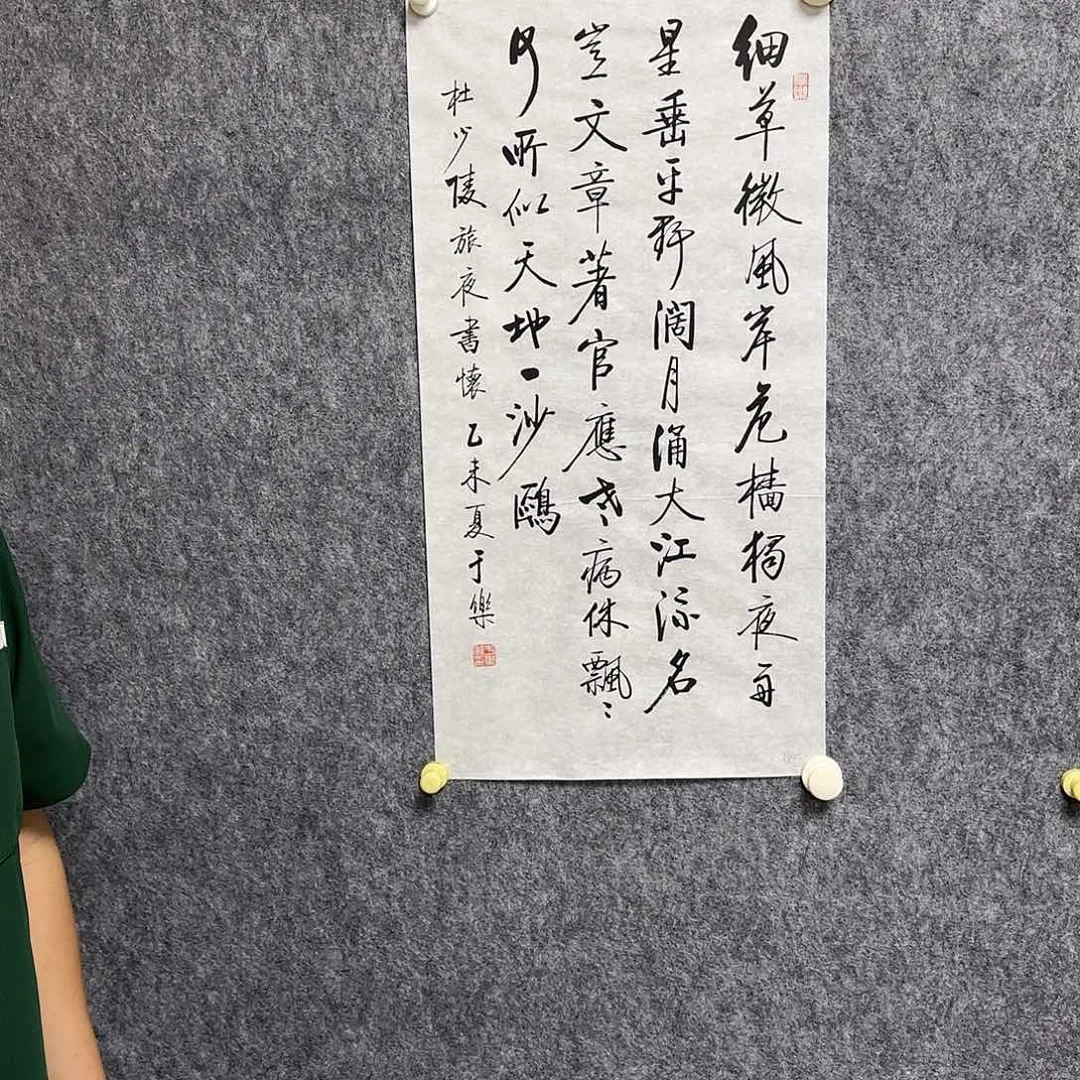 細草微風岸危檣獨夜舟
星垂平野闊月涌大江流名
豈文章著官應老病休飄〻
何所似天地一沙鷗
杜少陵旅夜書懷乙未夏于樂